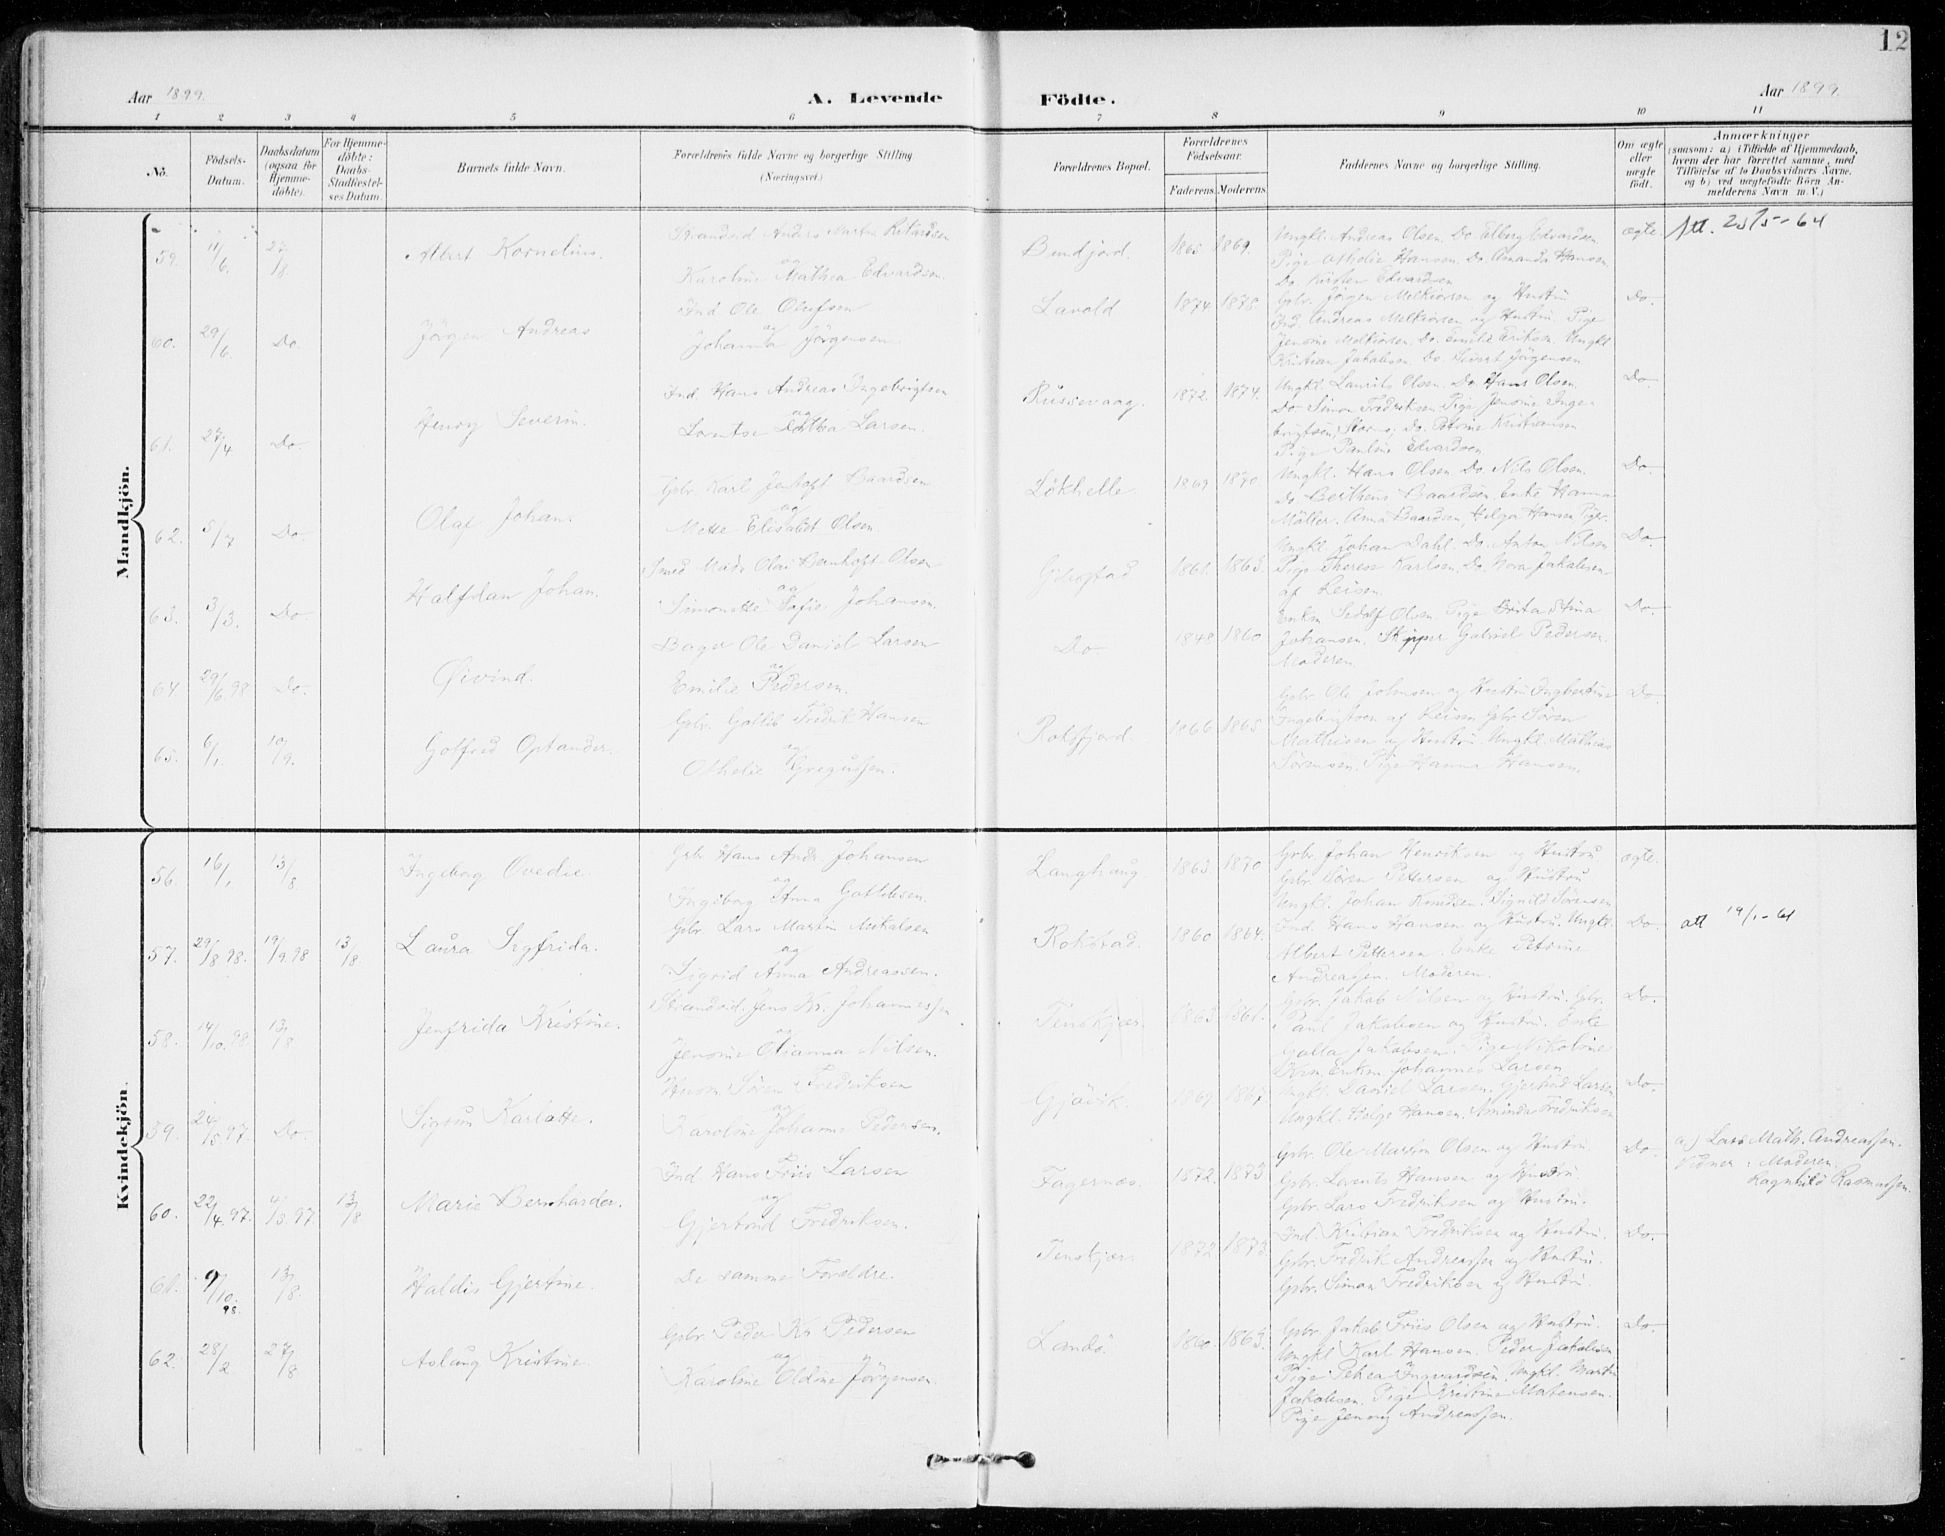 12
Aar 1899.
A. Levende
Födte.
Aar 1899.
1 2 3 4 5 6 7 8 9 10 11
No.
Födsels-
Datum.
Daabsdatum
(ogsaa for
Hjemme-
döbte).
For Hjemme-
döbte:
Daabs-
Stadfæstel-
ses Datum
Barnets fulde Navn.
Forældrenes fulde Navne og borgerlige Stilling
(Næringsvei.)
Forældrenes Bopæl.
Forældrenes
Födselsaar.
Faderens. Moderens.
Faddernes Navne og borgerlige Stilling.
Om ægte
eller
uægte
födt.
Anmærkninger
(saasom: a) i Tilfælde af Hjemmedaab,
hvem der har forrettet samme, med
Tilföielse af to Daabsvidners Navne,
og b) ved uægtefödte Börn An-
melderens Navn m. V.)
Mandkjön.
59. 11/6. 27/8. Albert Kornelius.
Karoline Mathea Edvardsen.
1865 1869.
Ungkl. Andreas Olsen. Do. Elberg Edvardsen
Pige Othelie Hansen. Do. Amanda Hansen.
Do. Kirsten Edvardsen
ægte.
Att. 25/5-64
60. 29/6. Do. Jörgen Andreas
Ind. Ole Olufsen
og
Johanna Jörgensen
Lavold 1874 1878.
Gbr. Jörgen Melkiorsen og Hustru
Ind. Andreas Melkiorsen og Hustru. Pige
Jensine Melkiorsen. Do. Emilie Eriksen. Ungkl.
Kristian Jakobsen. Do. Sivert Jörgensen
Do.
61. 27/4 Do. Henry Severin.
Ind. Hans Andreas Ingebrigtsen
og
Larsen.
Russevaag. 1872. 1874.
Ungkl. Laurits Olsen. Do. Hans Olsen.
Do Simon Fredriksen. Pige Jensine Inge-
brigtsen, Do. Petrine Kristiansen
Pige Pauline Edvardsen
Do
62. 5/7 Do Olaf Johan.
Gbr. Karl Jentoft Baardsen
og
Mette Elisabet Olsen.
Lökhelle 1869 1870
Ungkl. Hans Olsen. Do. Nils Olsen.
Do Berthens Baardsen. Enke Hanna
Möller. Anna Baardsen, Helga Hansen Piger.
Do.
63. 3/3. Do Halfdan Johan.
Smed Mads Olai Bernhoft Olsen
og
Simonette Sofie Johansen.
Gibostad 1861. 1863.
Ungkl. Johan Dahl. Do. Anton Nilsen
Pige Therese Karlsen. Do. Nora Jakobsen
af Reisen.
Do.
64 29/6.98. Do. Øivind.
Bager Ole Daniel Larsen
og
Emilie Pedersen.
Do 1848 1860
Olsen. Pige
Johansen. Skipper Gabriel Pedersen.
Moderen.
Do.
65. 6/1. 10/9. Golfred Optander.
Gbr. Gottlib Fredrik Hansen
og
Othelie Gregussen.
Roksfjord. 1866 1865
Gbr. Ole Johnsen og Hustru Ingbertine
Ingebrigtsen af Reisen. Gbr. Søren
Mathisen og Hustru. Ungkl. Mathias
Sørensen. Pige Hanna Hansen.
Do.
Kvindekjön.
56. 16/1. 13/8. Ingeborg Ovedie.
Gbr Hans Andr Johansen
og
Ingeborg Anna Gottlibsen.
Langhaug 1863. 1870
Gbr. Johan Henriksen og Hustru
Gbr. Søren Pettersen og Hustru
Ungkl. Johan Knudsen. Signild Sørensen
ægte.
57. 29/8.98. 19/9.98 13/8. Laura Sigfrida.
Gbr. Lars Martin Mikalsen
og
Sigrid Anna Andreassen.
Rokstad. 1860 1864.
Ind. Hans Hansen og Hustru. Ungkl.
Albert Pettersen. Enke Petrine
Andreassen. Moderen.
Do.
att 19/1-61
58. 14/10.98. 13/8 Jenfrida Kristine.
Strandsid. Jens Kr. Johannessen
og
Jensine Nilsen.
Tenskjær. 1863 1861.
Gbr. Jakob Nilsen og Hustru. Gbr.
Paul Jakobsen og Hustru. Enke
Jakobsen. Pige Nikoline
Do.
59. 24/5.97. Do. Sigrun Karlotte.
Husm. Søren Fredriksen
og
Karoline Johanne Pedersen.
Gjövik. 1869 1867.
Krm. Enkm. Johannes Larsen
Ungkl. Daniel Larsen. Gjertrud Larsen
Ungkl. Helge Hansen. Aminda Fredriksen
Do.
60. 22/4.97. 4/5.97. 13/8 Marie Bernharda.
Ind. Hans Friis Larsen
og
Gjertrud Fredriksen.
Fagernæs. 1872. 1873.
Gbr. Ole Martin Olsen og Hustru.
Gbr. Lorents Hansen og Hustru.
Gbr. Lars Fredriksen og Hustru.
Do.
a.) Lars Math. Andreassen.
Vidner: Moderen
Ragnhild Rasmussen.
61. 9/10.98. 13/8. Haldis Gjertine.
De samme Forældre.
Tenskjær. 1872. 1873.
Ind. Kristian Fredriksen og Hustru.
Gbr. Fredrik Andreassen og Hustru.
Gbr. Simon Fredriksen og Hustru.
Do.
62. 28/2 27/8 Aslaug Kristine.
Gbr. Peder Kr Pedersen
og
Karoline Oldine Jörgensen.
Landö. 1860. 1863.
Gbr. Jakob Friis Olsen og Hustru.
Ungkl Karl Hansen. Peder Jakobsen
Pige Ingvardsen. Ungkl. Martin
Jakobsen. Pige Kristine Matensen.
Pige Jenny Andreassen.
Do.